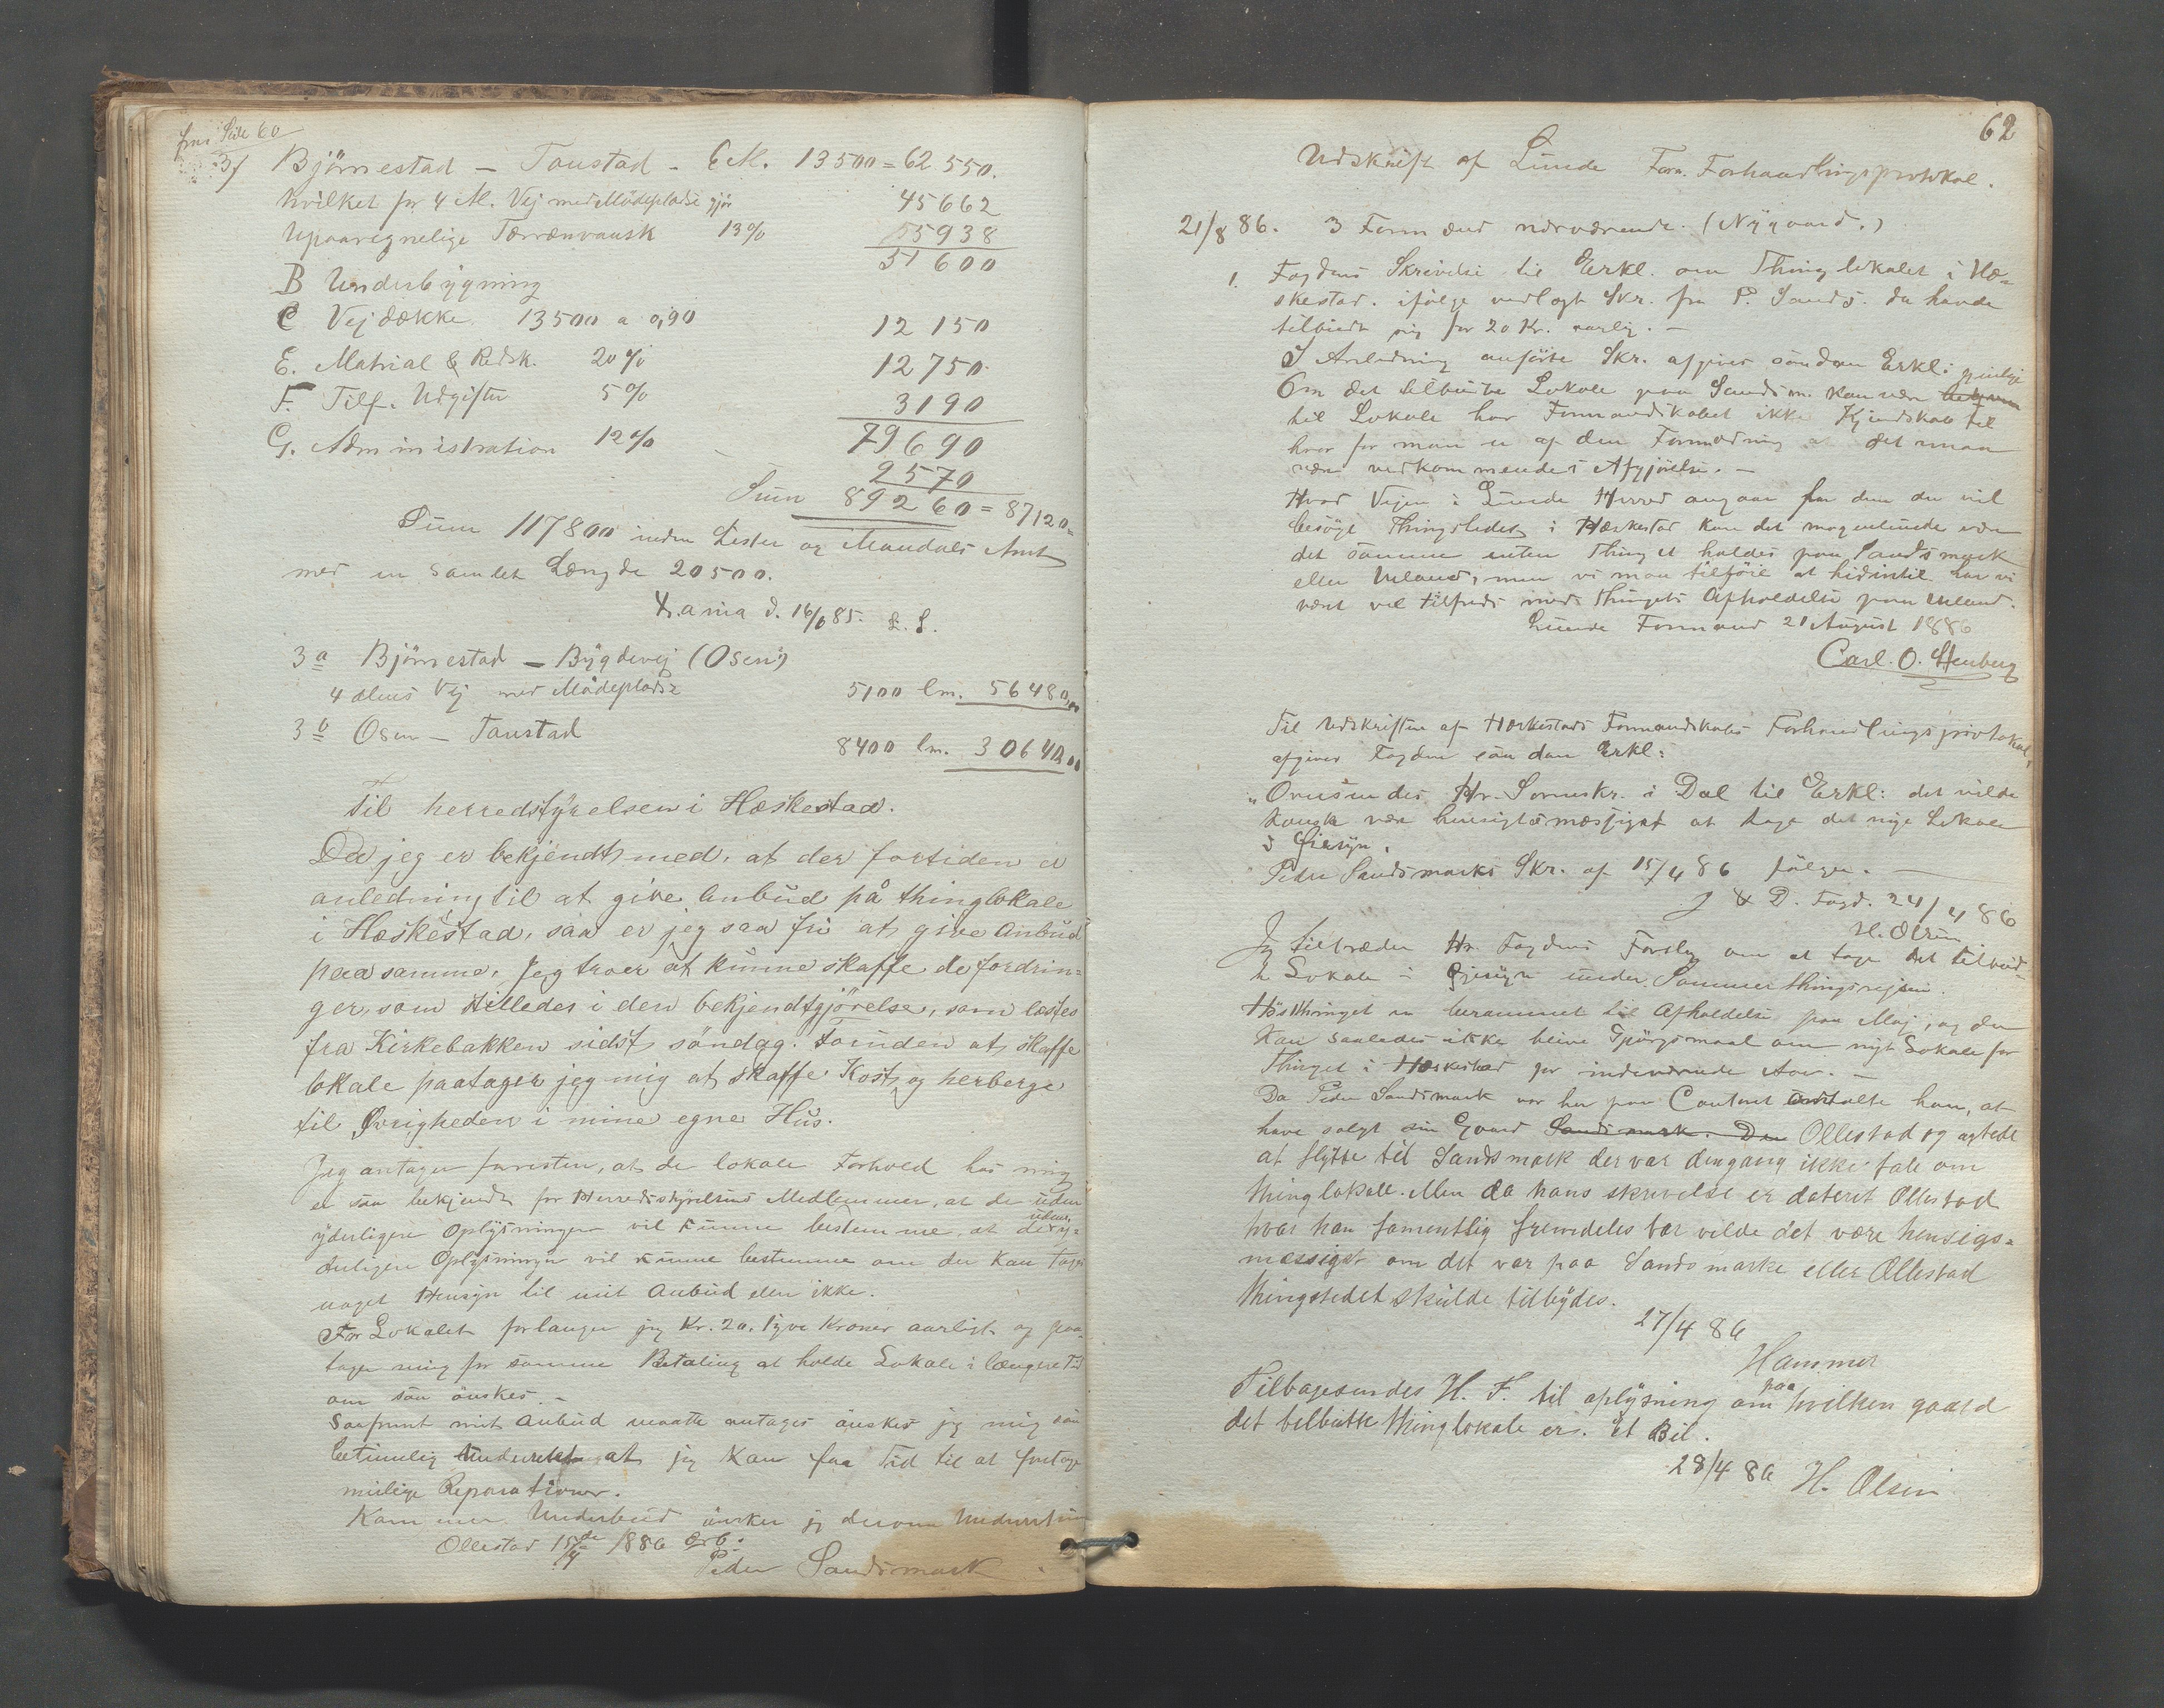 fra Side 60
3/ Björnestad — Taustad - 6 M. 13500 = 62 550.
hvilket for 4 M. Vej med Mödepladse gjör 45662
Upaaregnelige Tærrænvansk 13% 5938
51 600
B Underbygning
C Vejdække 13500 a 0,90 12 150
E. Matrial & Redsk. 20% 12750
F. Tilf. Udgifter 5% 3190
79690
G. Administration 12% 9570
Sum 89260 = 87120
Sum 117800 inden Lister og Mandals Amt
med en samlet Længde 20500.
X.ania d. 16/6 85. L. S.
3a Björnestad — Bygdevej (Osen)
4 alens Vej med Mödepladse 5100 lm. 56480,00
3b Osen — Taustad
8400 lm. 30640,00
Til herredstyrelsen i Hæskestad.
Da jeg er bekjendt med, at der fortiden er
anledning til at give anbud på thinglokale
i Hæskestad, saa er jeg saa fri at give Anbud
paa samme. Jeg troer at kunne skaffe de fordrin=
ger, som stilledes i den bekjendtgjörelse, som læstes
fra Kirkebakken sidst söndag. Foruden at skaffe
lokale paatager jeg mig at skaffe Kost og herberge
til Øvrigheden i mine egne Hus.
Jeg antager foresten, at de lokale Forhold hos mig
er saa bekjendt for Herredsstyrelsens Medlemmer, at de uden
yderligere Oplysninger vil kunne bestemme, at de uden y=
derligere Oplysninger vil kunne bestemme om der kan tages
noget Hensyn til mit Anbud eller ikke.
For Lokalet forlanger jeg Kr. 20. tyve Kroner aarligt og paa=
tager mig for samme Betaling at holde Lokale i længere Tid
om saa önskes. —
Saafremt mit Anbud maatte antages önskes jeg mig saa
betimelig Underrettet at jeg kan faa Tid til at foretage
mulige Reparationer.
Kommer Underbud önsker jeg derom Underretning
Ollestad 15de/4 1886 Erb:
Peder Sandsmark
62
Udskrift af Lunde Form. Forhandlingsprotokol.
21/8 86. 3 Formænd nærværende. (Nygaard.)
1. Fogdens Skrivelse til Erkl. om Thinglokalet i Hæ=
skestad. ifölge vedlagt Skr. fra P. Sands. da havde
tilbudt sig for 20 Kr. aarlig. —
I Anledning anförte Skr. afgives saadan Erkl:
Om det tilbudte Lokale paa Sandsm. kan være
til Lokale har Formandskabet ikke Kjendskab til
hvorfor man er af den Formodning at det maa
være vedkommendes Afgjörelse. —
Hvad Vejen i Lunde Herred angaar for dem der vil
besöge Thingstedet i Hæskestad kan det magenlunde være
det samme enten Thinget holdes paa Sandsmark
eller Ueland, men vi maa tilföie at hidindtil har vi
været vel tilfreds med Thingets Afholdelse paa Ueland.
Lunde Formand 21 August 1886
Carl. O. Stenberg
Til Udskriften af Hæskestads Formandskabs Forhandlingsprotokol,
afgiver Fogden saadan Erkl:
"Oversendes Hr. Sorenskr. i Dal til Erkl: det vilde
kanske være hensigtsmæssigst at tage det nye Lokale
i Øiesyn.
Peder Sandsmarks Skr. af 15/4 86 fölger. —
J & D. Fogd. 24/4 86
H. Olsen
Jeg tiltræder Hr. Fogdens Forslag om at tage det tilbud=
te Lokale i Øjesyn under Sommerthingsrejsen.
Höstthinget er berammet til Afholdelse paa Moj, og der
kan saaledes ikke blive Spörgsmaal om nyt Lokale for
Thinget i Hæskestad for indeværende Aar. —
Da Peder Sandsmark var her paa Contoret omtalte han, at
have solgt sin Gaard Sandsmark. Den Ollestad og agtede
at flytte til Sandsmark der var dengang ikke tale om
thinglokale. Men da hans skrivelse er dateret Ollestad
hvor han formentlig fremdeles bor vilde det være hensigs=
mæssigst om det var paa Sandsmarke eller Ollestad
thingstedet skulde tilbydes.
27/4 86
Hammer
Tilbagesendes H. F. til oplysning om paa hvilken gaard
det tilbudte thinglokale er. Et Bil.
28/4 86 H. Olsen